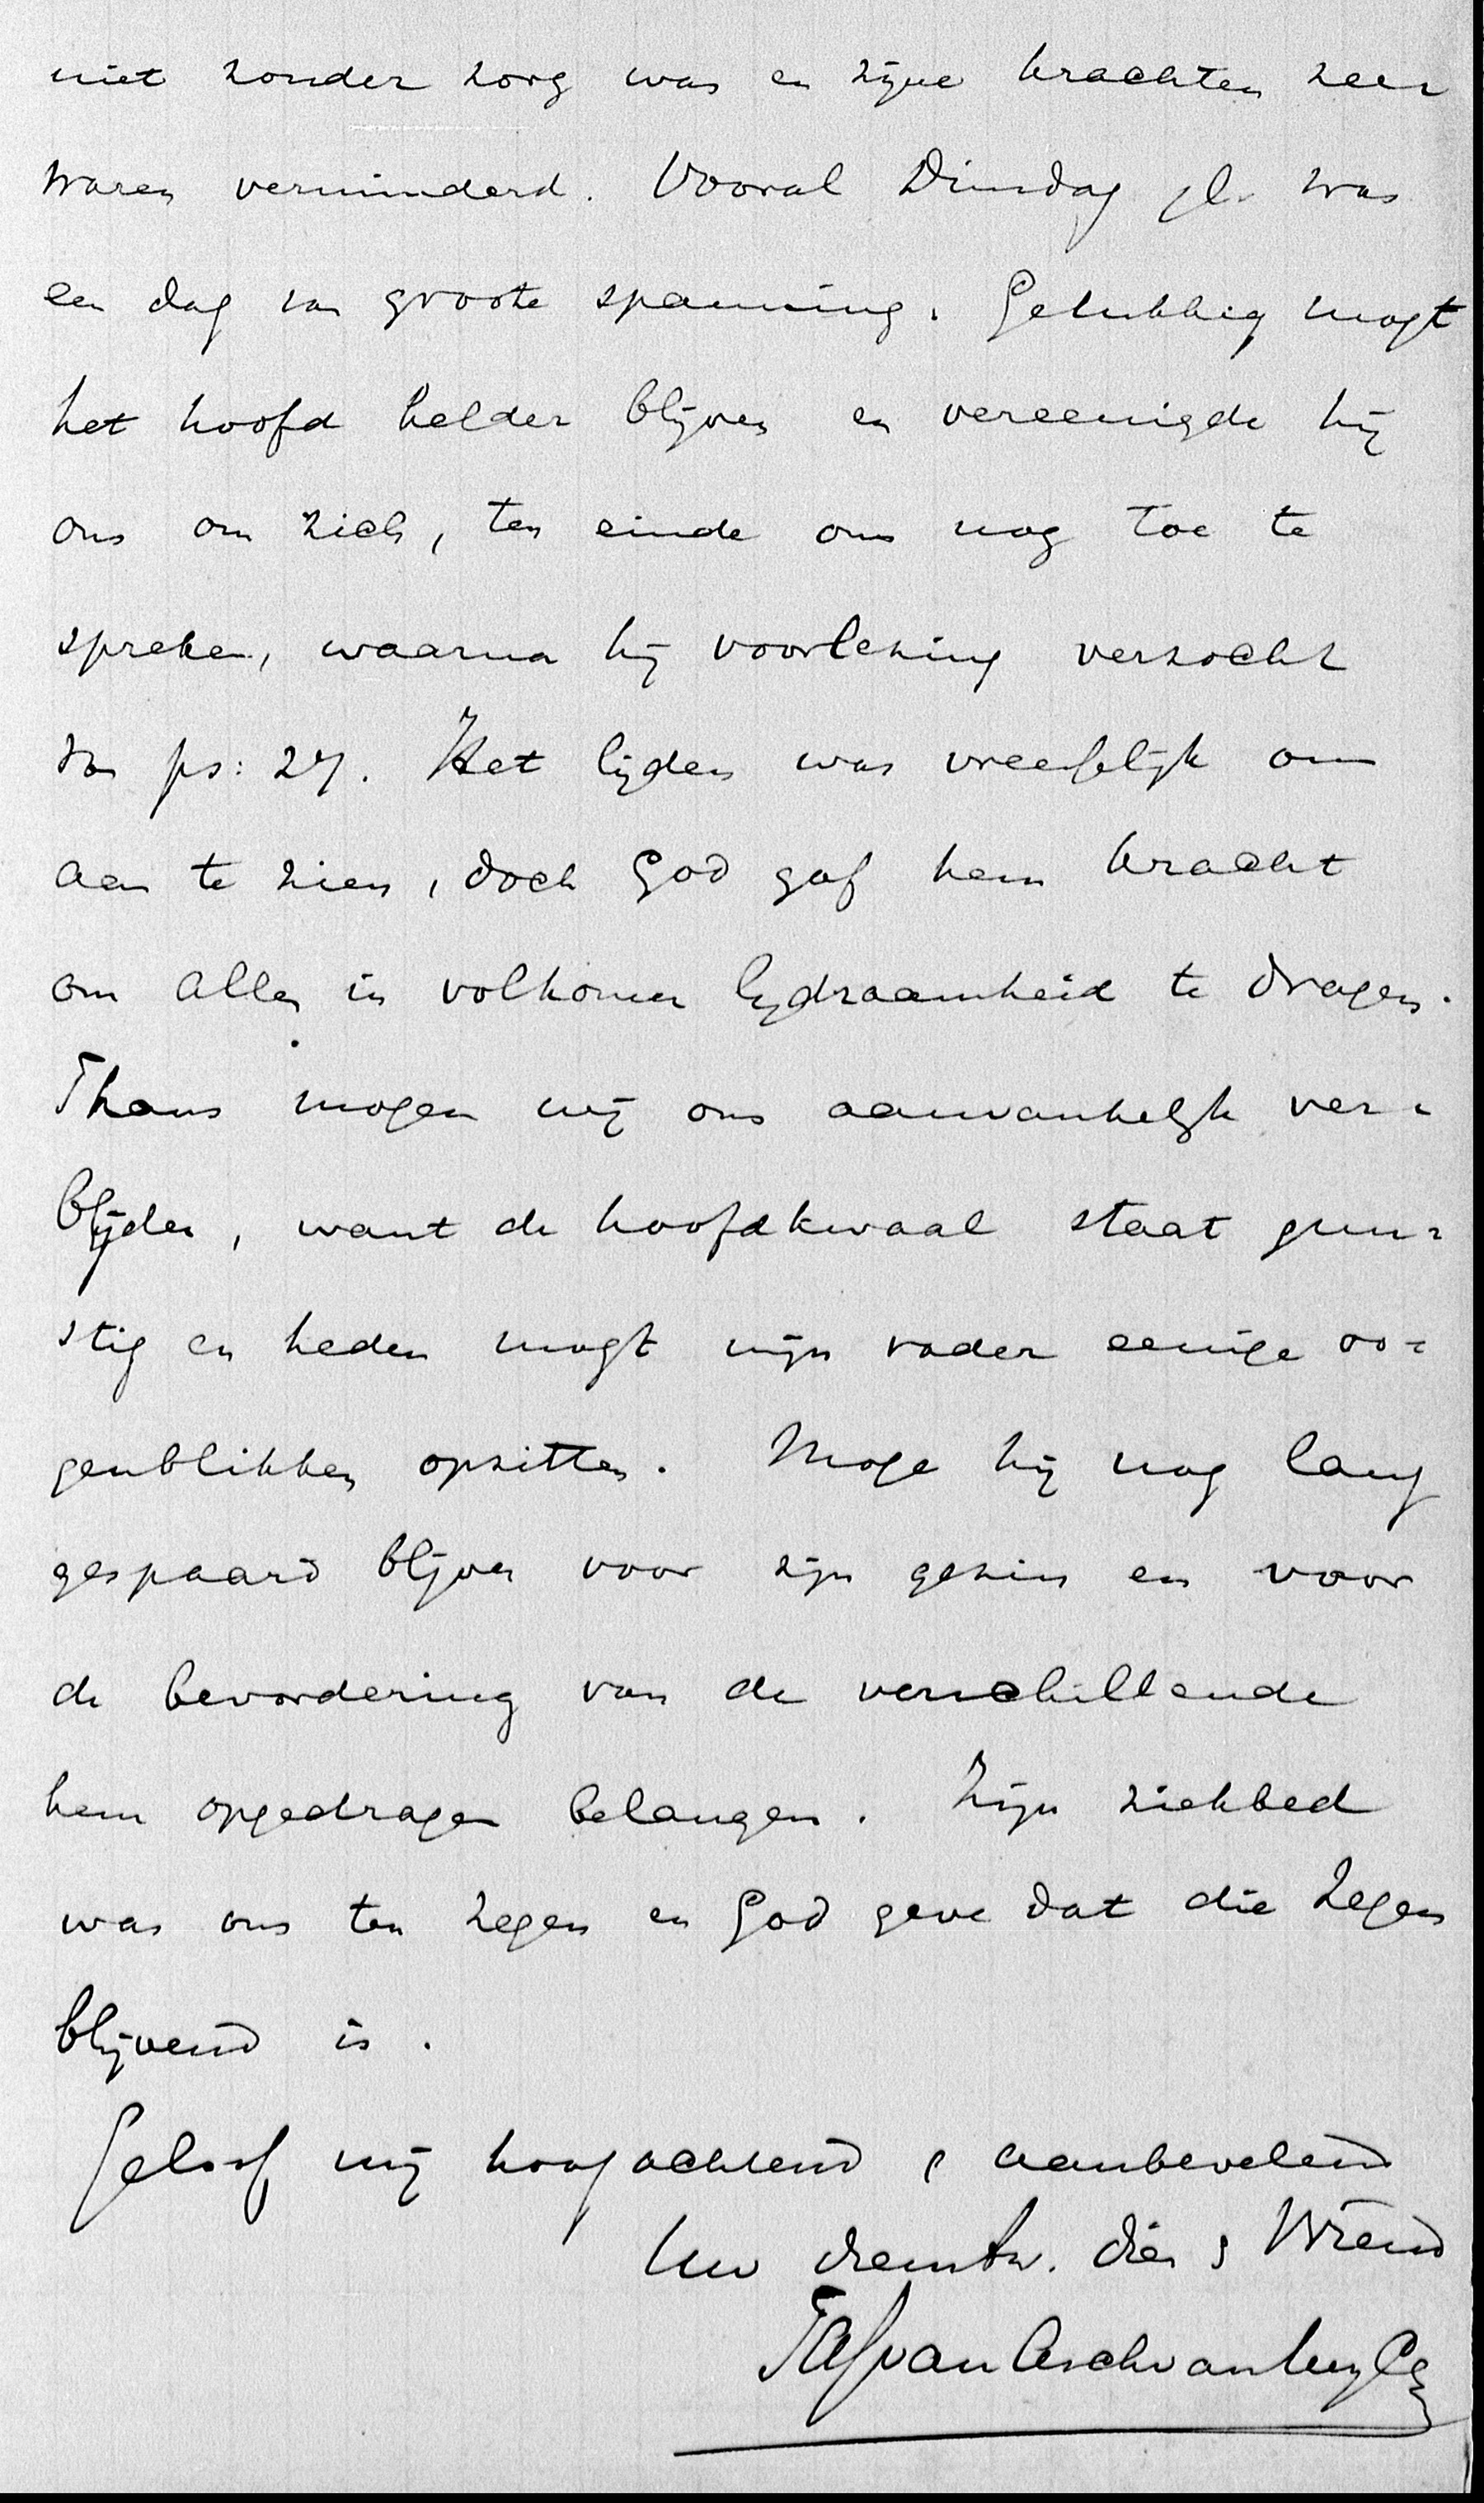 niet zonder zorg was en zijne krachten zeer
waren verminderd. Vooral Dinsdag jl. was
een dag van groote spanning. Gelukkig mogt
het hoofd helder blijven en vereenigde hij
ons om zich, ten einde ons nog toe te
spreken, waarna hij voorlezing verzocht
van ps: 27. Het lijden was vreeselijk om
aan te zien, doch God gaf hem kracht
om alles in volkomen lijdzaamheid te dragen.
Thans mogen wij ons aanvankelijk ver-
blijden, want de hoofdkwaal staat gun-
stig en heden mogt mijn vader eenige oo-
genblikken opzitten. Moge hij nog lang
gespaard blijven voor zijn gezin en voor
de bevordering van de verschillende
hem opgedragen belangen. Zijn ziekbed
was ons ten zegen en God geve dat die zegen
blijvend is.
Geloof mij hoogachtend & aanbevelend
Uw dienstw. dien & Vriend
van Asch van Wijck